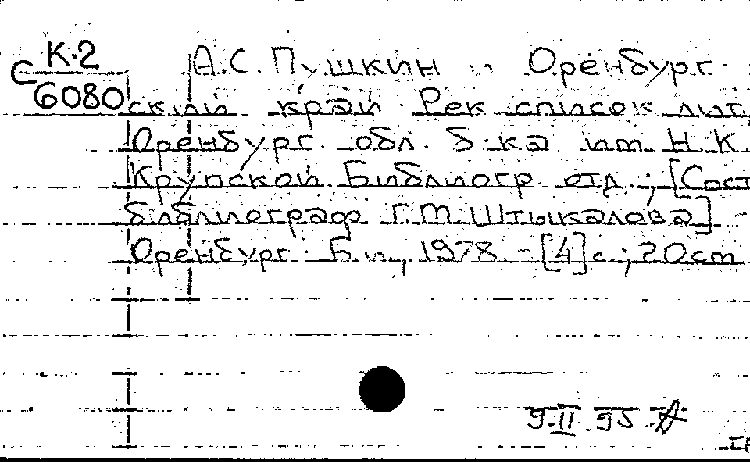 К.2
С
6080
А.С. Пушкин и Оренбург-
ский край Рек список лит.
Оренбург. обл. б-ка им Н К
Крупской Библиогр отд.; [Сост
библиограф Г.М.Штыкалова] -
Оренбург: Б.и., 1978 - [4] с.; 20см
9.II 95